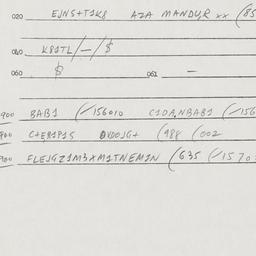 020 EJNS+T1K8 AZA MANDUR xx (85
040 K81TL/—/$
060 $ 061 —
900 BAB1 (/156010 C1DA,NBAB1 (/156
900 C+E81P1S DVDOJG+ (988 (002
900 FLEJGZ1M3XM1TNEM1N (635 (/1570